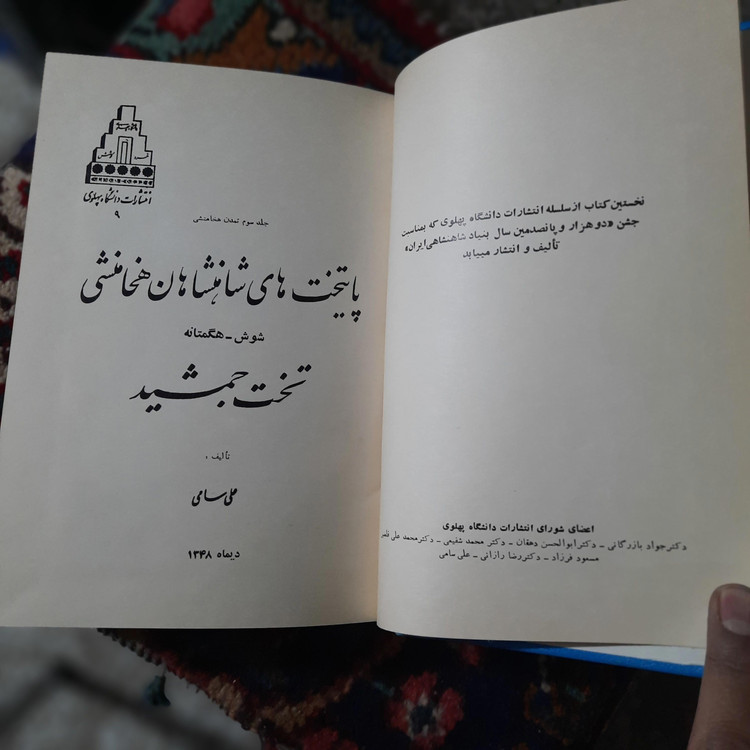 نخستین کتاب از سلسله انتشارات دانشگاه پهلوی که بمناسبت
جشن «دو هزار و پانصدمین سال بنیاد شاهنشاهی ایران»
تألیف و انتشار مییابد
اعضای شورای انتشارات دانشگاه پهلوی
دکتر جواد بازرگانی - دکتر ابوالحسن دهقان - دکتر محمد شفیعی - دکتر محمد علی
مسعود فرزاد - دکتر رضا رازانی - علی سامی
انتشارات دانشگاه پهلوی
۹
جلد سوم تمدن هخامنشی
پایتخت های شاهنشاهان هخامنشی
شوش - هگمتانه
تخت جمشید
تألیف :
علی سامی
دیماه ۱۳۴۸